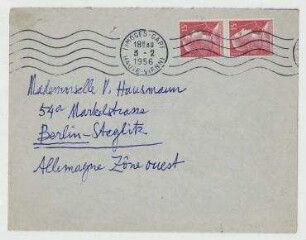 LIMOGES-GARE
18H45
3-2
1956
HAUTE-VIENNE
Mademoiselle V. Hausmann
54a Markelstrasse
Berlin-Steglitz
Allemagne Zône ouest